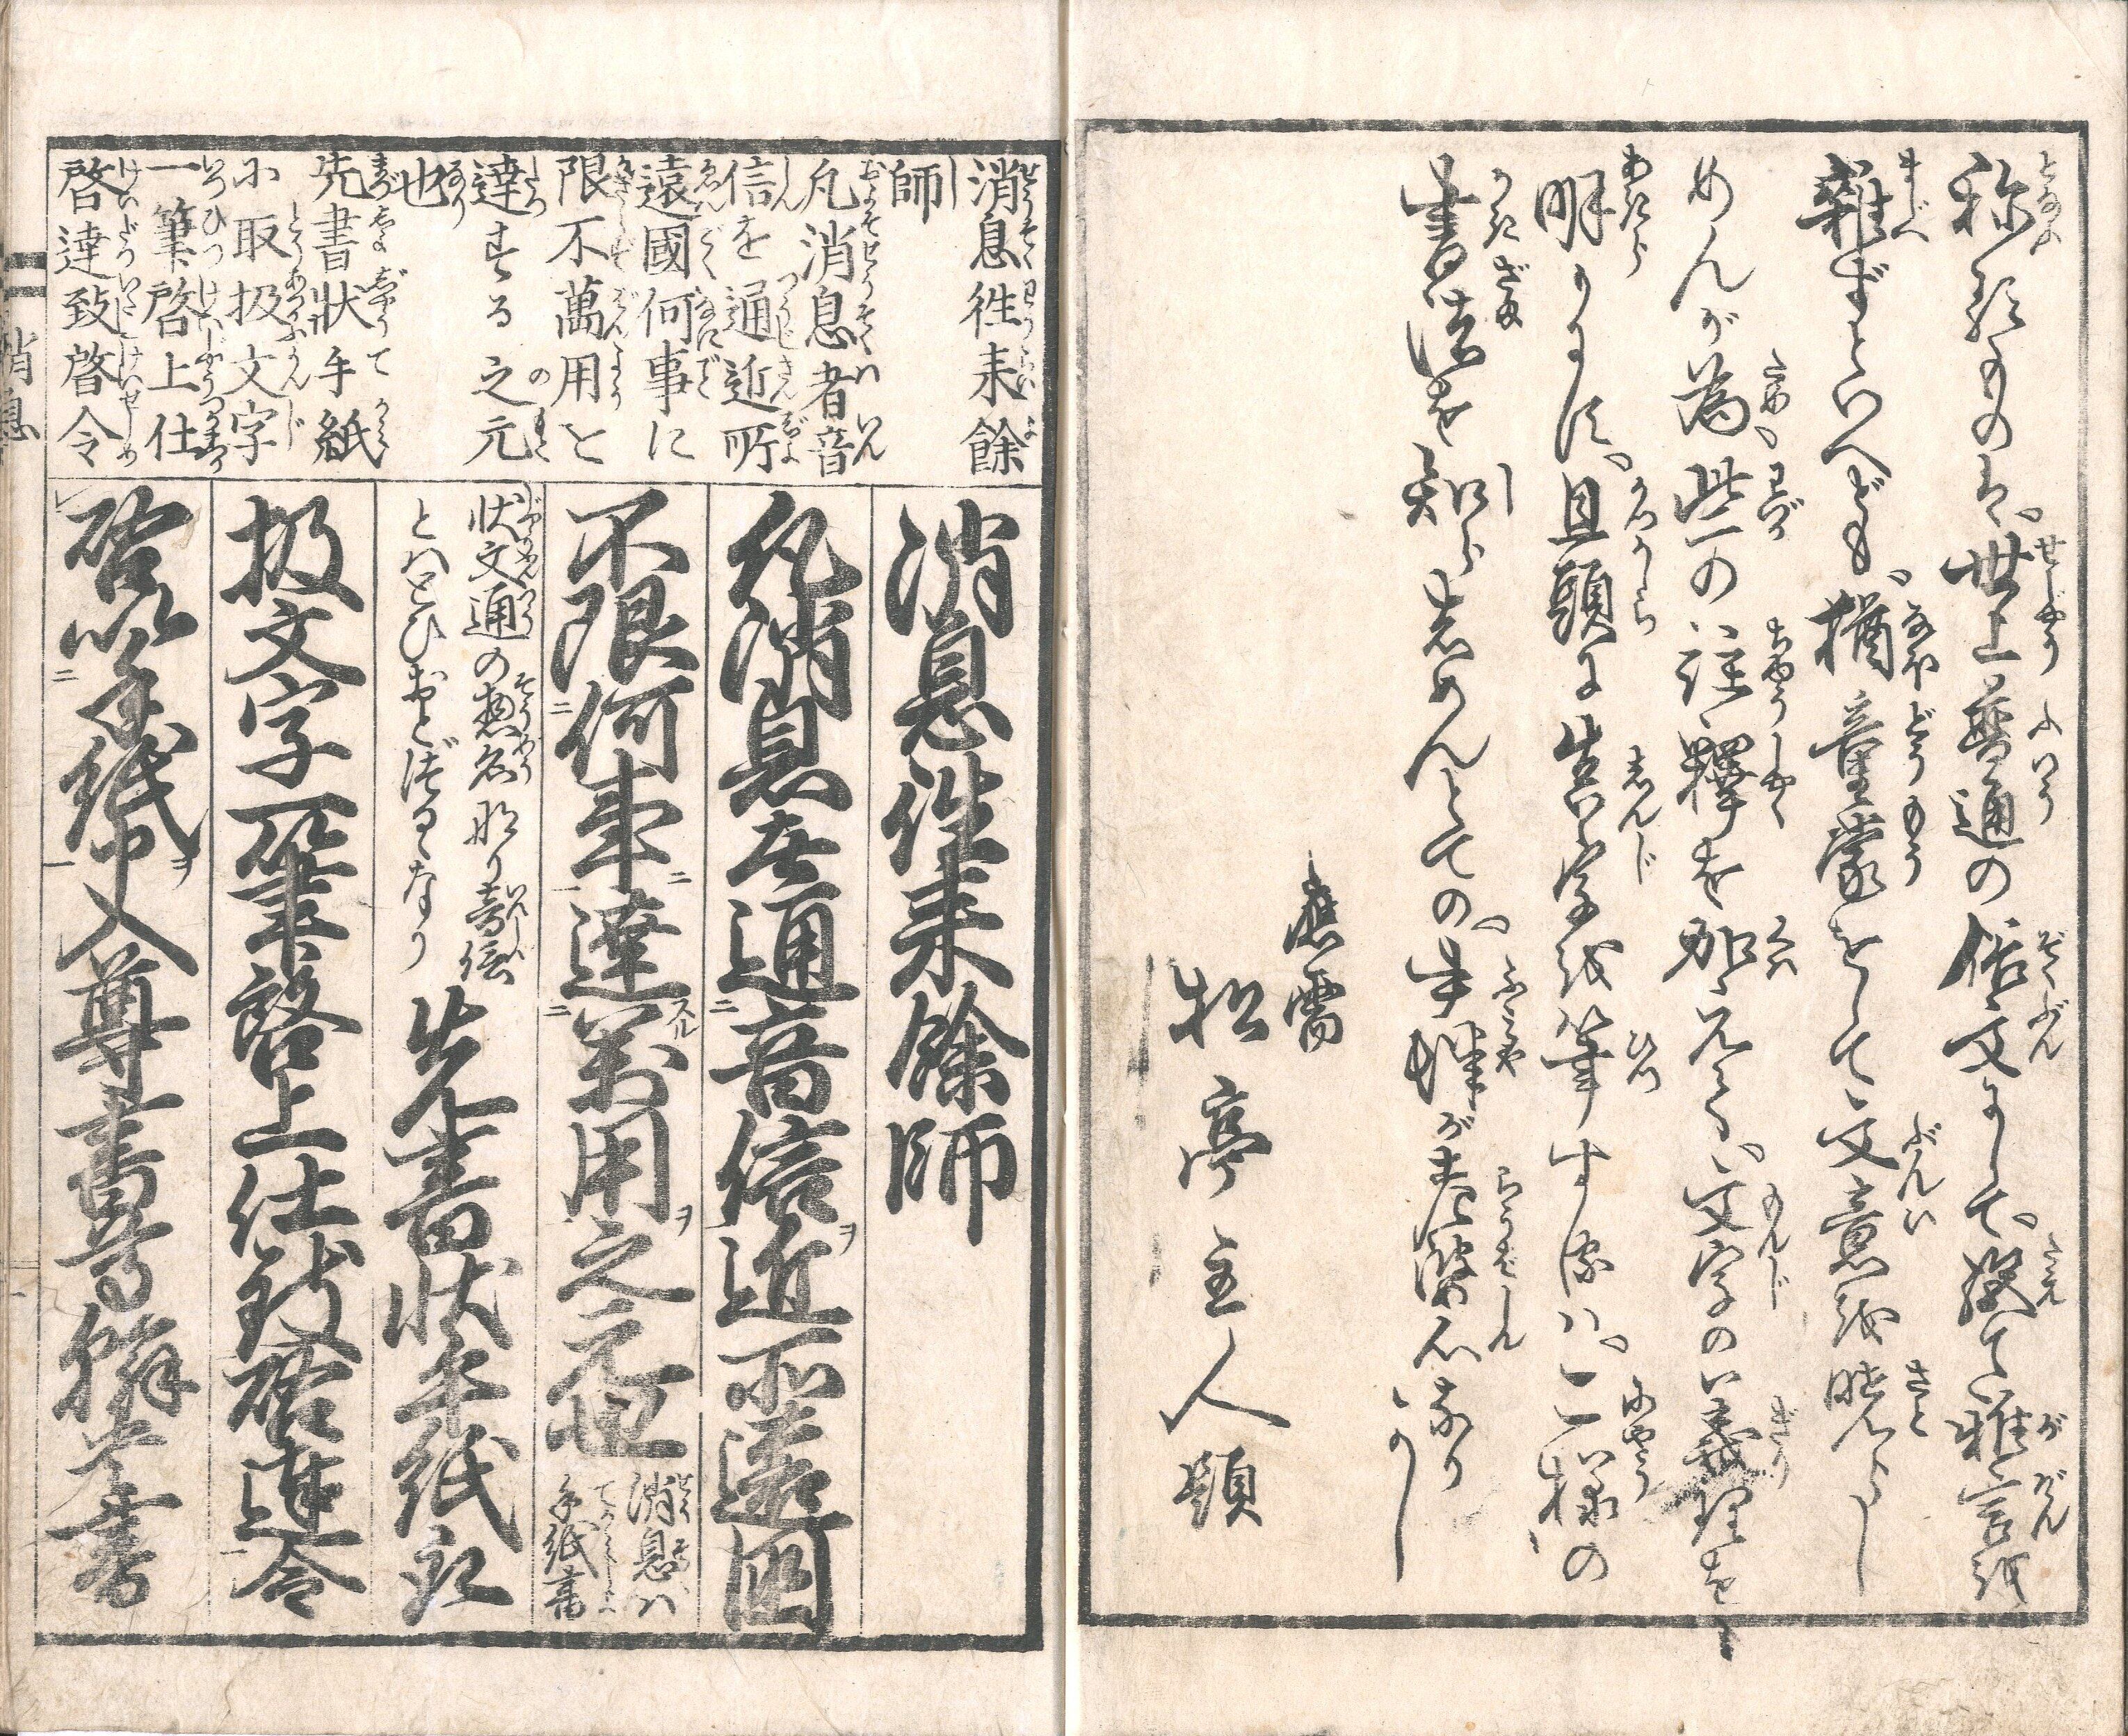 称するものは、世上普通の俗文にして、絶て雅言を
雑ずといへども、猶童蒙をして、文意を暁らし
めんが為、些の註釋を加えて、文字の義理を
明らかにす。且頭に真字を筆するは、二様の
書法を知らしめんとての、書肆が老婆心なるべし
應需
松亭主人題
消息往来餘
師
凡消息者音
信を通近所
遠國何事に
限不萬用を
達する之元
也
先書状手紙
に取扱文字
一筆啓上仕
啓達致啓令
消息往来餘師
凡消息者通音信近所遠国
不限何事達萬用之元也
消息は
手紙書
状文通の惣名なり音信
とはとひおとづるゝなり
先書状手紙取
扱文字一筆啓上仕致啓達令
啓以手紙申入尊書尊翰貴書
消息